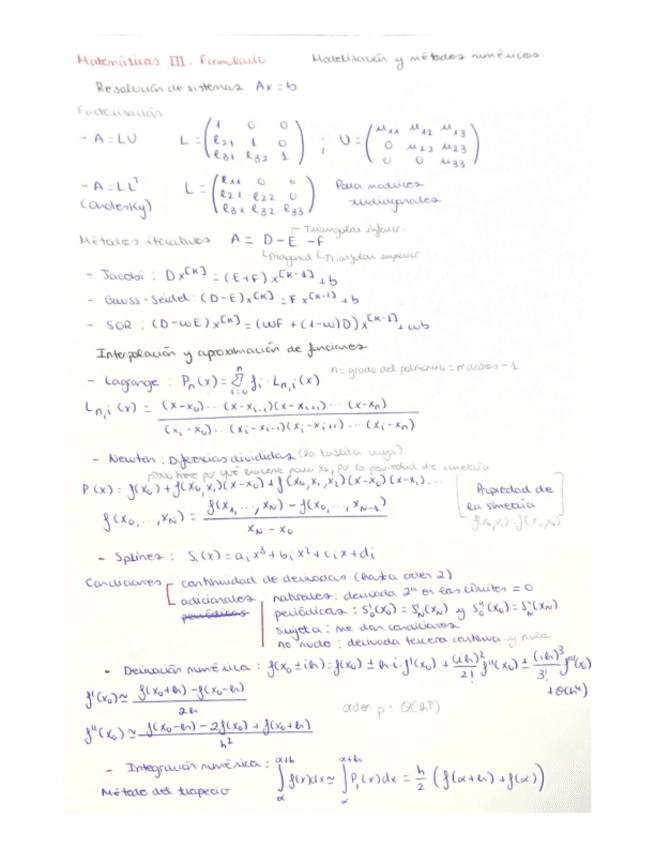 Matemáticas III. Formulario Modelización y métodos numéricos.
Resolución de sistemas Ax = b
Factorización
- A = LU L = (1 0 0; ℓ21 1 0; ℓ31 ℓ32 1) ; U = (u11 u12 u13; 0 u22 u23; 0 0 u33)
- A = LL^T L = (ℓ11 0 0; ℓ21 ℓ22 0; ℓ31 ℓ32 ℓ33) Para matrices
(Cholesky) tridiagonales
Triangular inferior.
Métodos iterativos A = D - E - F
Diagonal Triangular superior
- Jacobi : Dx^[k] = (E+F) x^[k-1] + b
- Gauss-Seidel : (D-E) x^[k] = F x^[k-1] + b
- SOR : (D-ωE) x^[k] = (ωF + (1-ω)D) x^[k-1] + ωb
Interpolación y aproximación de funciones
- Lagrange : Pn(x) = Σ_{i=0}^{n} fi · Ln,i(x) n = grado del polinomio = nº datos - 1
Ln,i (x) = (x-x0)···(x-xi-1)(x-xi+1)···(x-xn) / (xi-x0)···(xi-xi-1)(xi-xi+1)···(xi-xn)
- Newton : Diferencias divididas (la tablita)
No tiene por qué hacerse para x0, por la propiedad de simetría
P(x) = f(x0) + f(x0,x1)(x-x0) + f(x0,x1,x2)(x-x0)(x-x1)...
Propiedad de
la simetría
f(x0,x1) = f(x1,x0)
f(x0,...,xN) = (f(x1,...,xN) - f(x0,...,xN-1)) / (xN - x0)
- Splines : Si(x) = ai x³ + bi x² + ci x + di
Condiciones continuidad de derivadas (hasta orden 2)
adicionales naturales : derivada 2ª en los límites = 0
periódicas periódicas : S'0(x0) = S'N(xN) y S''0(x0) = S''N(xN)
sujeta : me dan condiciones
no nudo : derivada tercera continua
- Derivación numérica : f(x0 ± ih) = f(x0) ± h·i·f'(x0) + (ih)²/2! f''(x0) ± (ih)³/3! f'''(x0)
+ O(h⁴)
f'(x0) ≃ (f(x0+h) - f(x0-h)) / 2h
orden p : O(h^p)
f''(x0) ≃ (f(x0-h) - 2f(x0) + f(x0+h)) / h²
- Integración numérica : ∫_α^{α+h} f(x)dx ≃ ∫_α^{α+h} P1(x)dx = h/2 (f(α+h) + f(α))
Método del trapecio